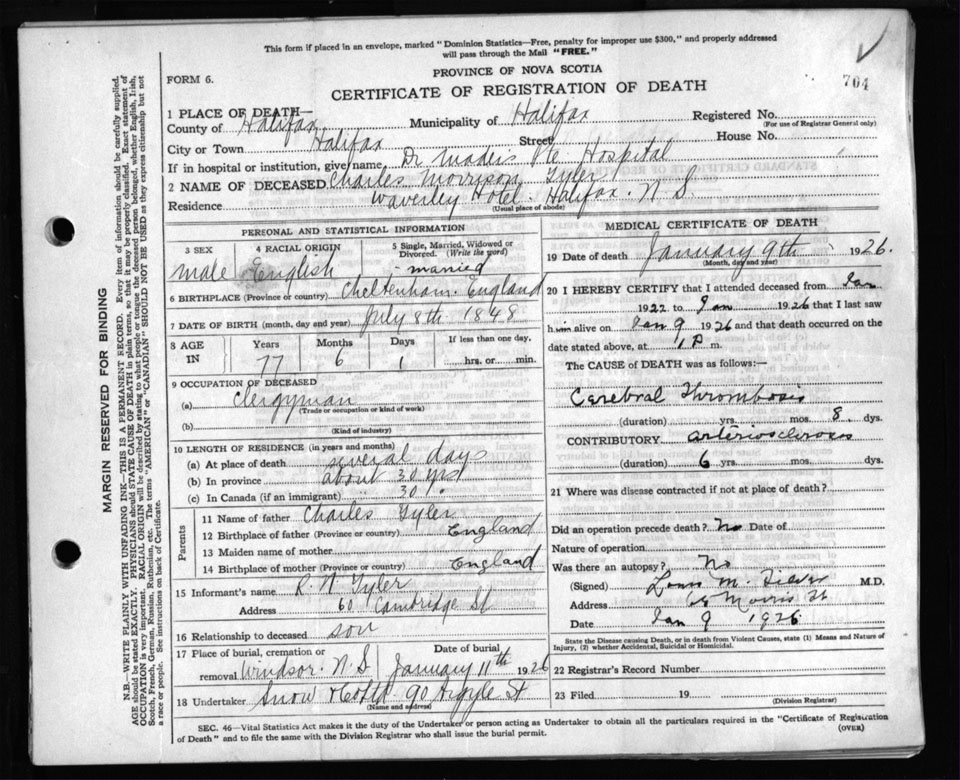 This form if placed in an envelope, marked "Dominion Statistics—Free, penalty for improper use $300," and properly addressed
will pass through the Mail "FREE."
FORM 6.
PROVINCE OF NOVA SCOTIA
704
CERTIFICATE OF REGISTRATION OF DEATH
1 PLACE OF DEATH—
County of Halifax Municipality of Halifax Registered No.
(For use of Registrar General only)
City or Town Halifax Street House No.
If in hospital or institution, give name, Dr Maders Pte Hospital
2 NAME OF DECEASED Charles Morrison Tyler
Residence Waverley Hotel. Halifax. N.S.
(Usual place of abode)
PERSONAL AND STATISTICAL INFORMATION
3 SEX
male
4 RACIAL ORIGIN
English
5 Single, Married, Widowed or
Divorced. (Write the word)
- married
6 BIRTHPLACE (Province or country) Cheltenham. England
7 DATE OF BIRTH (month, day and year) July 8th 1848
8 AGE
IN
Years Months Days If less than one day,
77 6 1 hrs. or min.
9 OCCUPATION OF DECEASED
(a) Clergyman
(Trade or occupation or kind of work)
(b)
(Kind of industry)
10 LENGTH OF RESIDENCE (in years and months)
(a) At place of death several days
(b) In province about 30 yrs
(c) In Canada (if an immigrant) " 30 "
Parents
11 Name of father Charles Tyler
12 Birthplace of father (Province or country) England
13 Maiden name of mother
14 Birthplace of mother (Province or country) England
15 Informant's name R. N. Tyler
Address 60 Cambridge St
16 Relationship to deceased son
17 Place of burial, cremation or
removal Windsor. N.S
Date of burial
January 11th 1926
18 Undertaker Snow & Co Ltd 90 Argyle St
(Name and address)
MEDICAL CERTIFICATE OF DEATH
19 Date of death January 9th 1926.
(Month, day and year)
20 I HEREBY CERTIFY that I attended deceased from Jan
1922 to Jan 1926 that I last saw
him alive on Jan 9 1926 and that death occurred on the
date stated above, at 1 P m.
The CAUSE OF DEATH was as follows:—
Cerebral Thrombosis
(duration) yrs. mos. 8 dys.
CONTRIBUTORY arteriosclerosis
(duration) 6 yrs. mos. dys.
21 Where was disease contracted if not at place of death?
Did an operation precede death? No Date of
Nature of operation
Was there an autopsy? No
(Signed) Louis M. Silver M.D.
Address Morris St
Date Jan 9 1926
State the Disease causing Death, or in death from Violent Causes, state (1) Means and Nature of
Injury, (2) whether Accidental, Suicidal or Homicidal.
22 Registrar's Record Number
23 Filed 19
(Division Registrar)
SEC. 46—Vital Statistics Act makes it the duty of the Undertaker or person acting as Undertaker to obtain all the particulars required in the "Certificate of Registration
of Death" and to file the same with the Division Registrar who shall issue the burial permit. (OVER)
MARGIN RESERVED FOR BINDING
N.B.—WRITE PLAINLY WITH UNFADING INK—THIS IS A PERMANENT RECORD. Every item of information should be carefully supplied.
AGE should be stated EXACTLY. PHYSICIANS should STATE CAUSE OF DEATH in plain terms, so that it may be properly classified. Exact statement of
OCCUPATION is very important. RACIAL ORIGIN will be described by stating to what people or tongue the deceased person belonged, whether English, Irish,
Scotch, French, German, Russian, Ruthenian, etc. The terms "AMERICAN" or "CANADIAN" SHOULD NOT BE USED as they express citizenship but not
a race or people. See instructions on back of Certificate.